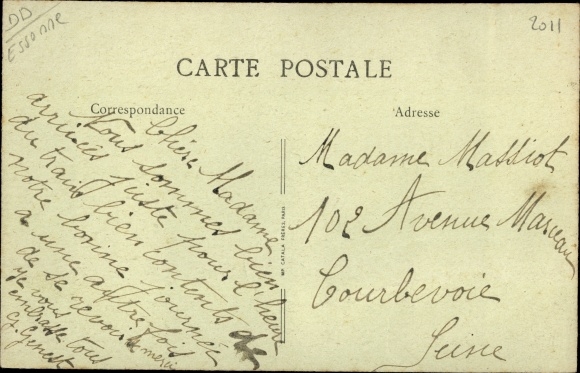 DD
Essonne
2011
CARTE POSTALE
Correspondance
Adresse
Chère Madame
Nous sommes bien
arrivés juste pour l'heure
du train bien contents de
notre bonne journée
a une autre fois
de se revoir merci
je vous
embrasse tous
G. Genest
IMP. CATALA FRÈRES, PARIS
Madame Massiot
102 Avenue Marceau
Courbevoie
Seine